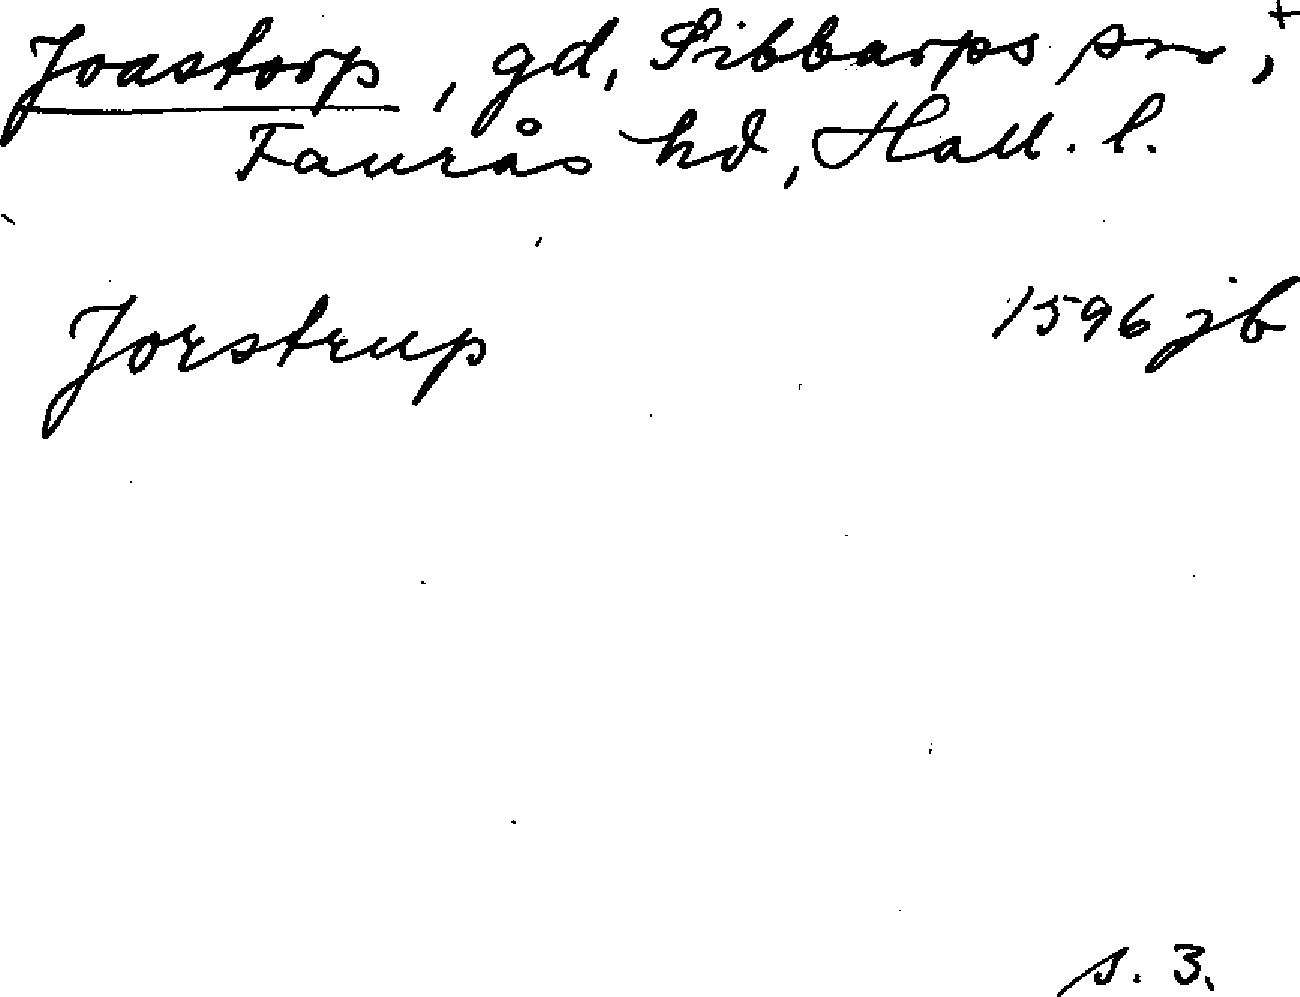 Joastorp, gd, Sibbarps sn, +
Faurås hd, Hall. l.
Jorstrup 1596 jb
s. 3.